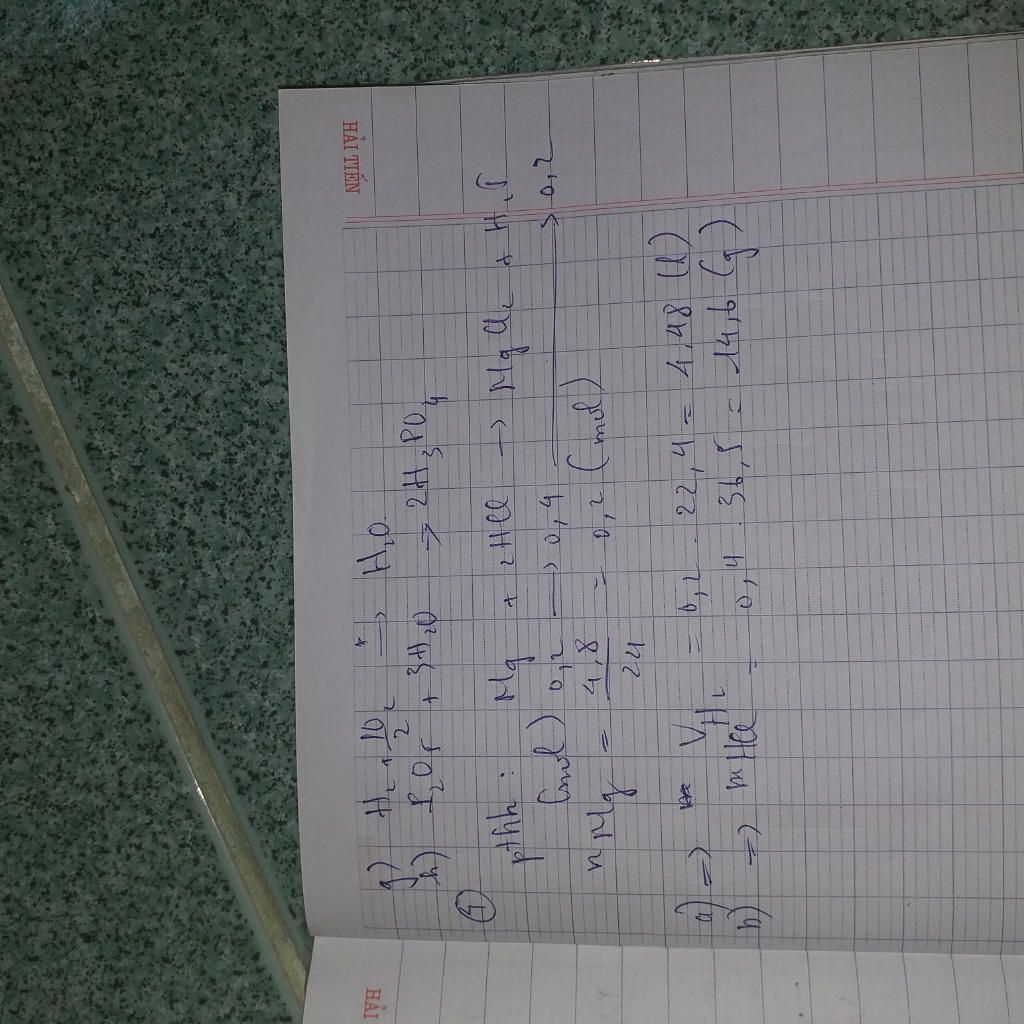 HẢI TIẾN
g) H₂ + 1/2 O₂ →ᵗ H₂O
h) P₂O₅ + 3H₂O → 2H₃PO₄
④ pthh: Mg + 2HCl → MgCl₂ + H₂↑
(mol) 0,2 → 0,4 → 0,2
nMg = 4,8/24 = 0,2 (mol)
a) => V H₂ = 0,2 . 22,4 = 4,48 (l)
b) => mHCl = 0,4 . 36,5 = 14,6 (g)
HẢI